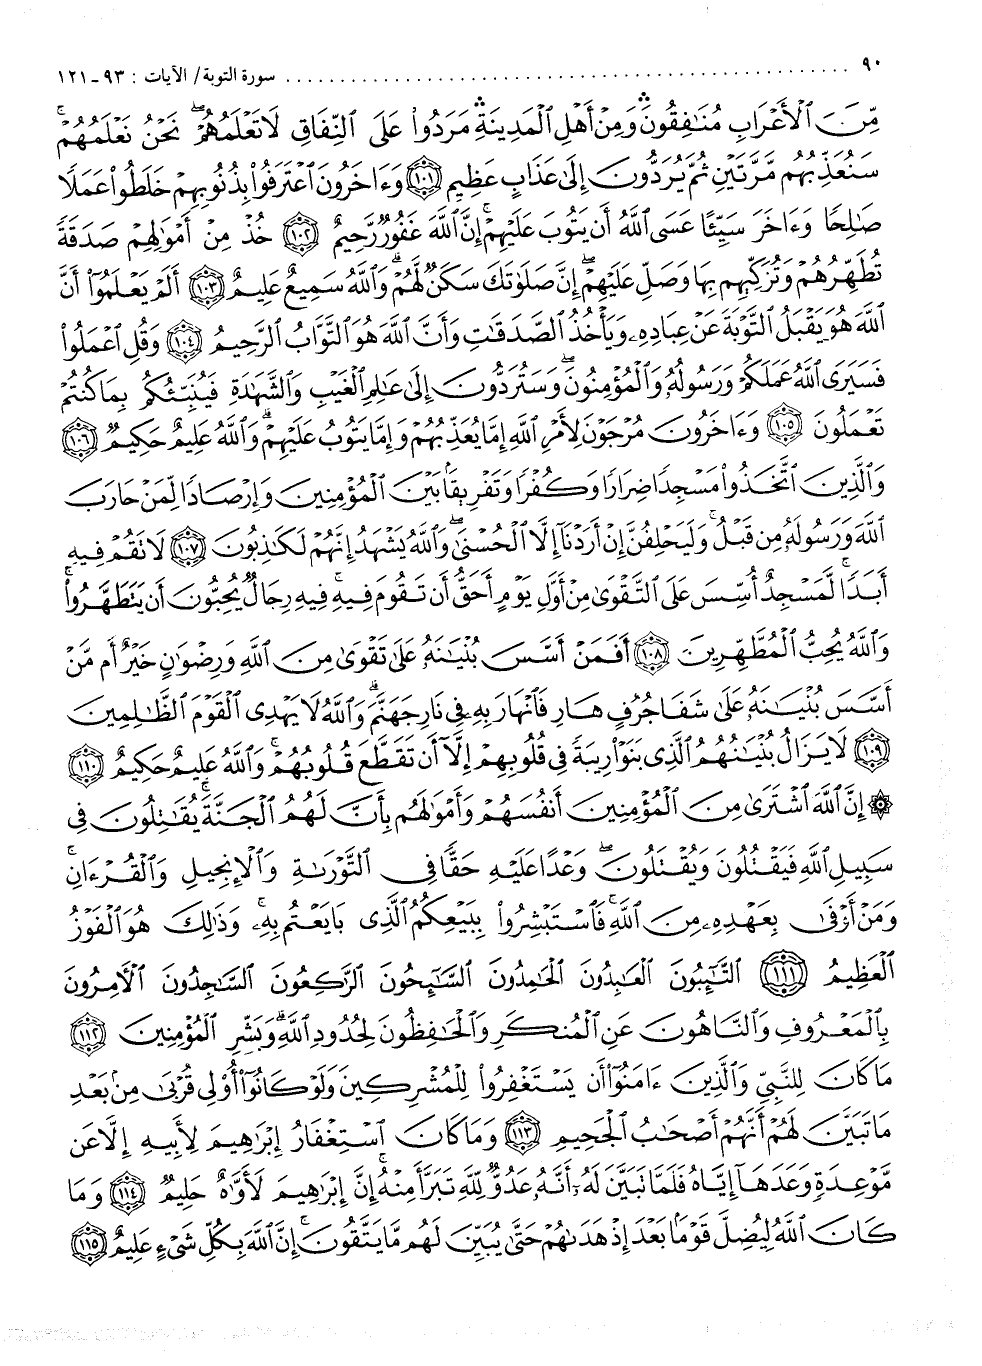 ٩٠ ........................................ سورة التوبة/ الآيات : ٩٣-١٢١
مِّنَ ٱلْأَعْرَابِ مُنَٰفِقُونَ ۛ وَمِنْ أَهْلِ ٱلْمَدِينَةِ ۛ مَرَدُوا۟ عَلَى ٱلنِّفَاقِ لَا تَعْلَمُهُمْ ۖ نَحْنُ نَعْلَمُهُمْ ۚ
سَنُعَذِّبُهُم مَّرَّتَيْنِ ثُمَّ يُرَدُّونَ إِلَىٰ عَذَابٍ عَظِيمٍ ﴿١٠١﴾ وَءَاخَرُونَ ٱعْتَرَفُوا۟ بِذُنُوبِهِمْ خَلَطُوا۟ عَمَلًا
صَٰلِحًا وَءَاخَرَ سَيِّئًا عَسَى ٱللَّهُ أَن يَتُوبَ عَلَيْهِمْ ۚ إِنَّ ٱللَّهَ غَفُورٌ رَّحِيمٌ ﴿١٠٢﴾ خُذْ مِنْ أَمْوَٰلِهِمْ صَدَقَةً
تُطَهِّرُهُمْ وَتُزَكِّيهِم بِهَا وَصَلِّ عَلَيْهِمْ ۖ إِنَّ صَلَوٰتَكَ سَكَنٌ لَّهُمْ ۗ وَٱللَّهُ سَمِيعٌ عَلِيمٌ ﴿١٠٣﴾ أَلَمْ يَعْلَمُوٓا۟ أَنَّ
ٱللَّهَ هُوَ يَقْبَلُ ٱلتَّوْبَةَ عَنْ عِبَادِهِۦ وَيَأْخُذُ ٱلصَّدَقَٰتِ وَأَنَّ ٱللَّهَ هُوَ ٱلتَّوَّابُ ٱلرَّحِيمُ ﴿١٠٤﴾ وَقُلِ ٱعْمَلُوا۟
فَسَيَرَى ٱللَّهُ عَمَلَكُمْ وَرَسُولُهُۥ وَٱلْمُؤْمِنُونَ ۖ وَسَتُرَدُّونَ إِلَىٰ عَٰلِمِ ٱلْغَيْبِ وَٱلشَّهَٰدَةِ فَيُنَبِّئُكُم بِمَا كُنتُمْ
تَعْمَلُونَ ﴿١٠٥﴾ وَءَاخَرُونَ مُرْجَوْنَ لِأَمْرِ ٱللَّهِ إِمَّا يُعَذِّبُهُمْ وَإِمَّا يَتُوبُ عَلَيْهِمْ ۗ وَٱللَّهُ عَلِيمٌ حَكِيمٌ ﴿١٠٦﴾
وَٱلَّذِينَ ٱتَّخَذُوا۟ مَسْجِدًا ضِرَارًا وَكُفْرًا وَتَفْرِيقًۢا بَيْنَ ٱلْمُؤْمِنِينَ وَإِرْصَادًا لِّمَنْ حَارَبَ
ٱللَّهَ وَرَسُولَهُۥ مِن قَبْلُ ۚ وَلَيَحْلِفُنَّ إِنْ أَرَدْنَآ إِلَّا ٱلْحُسْنَىٰ ۖ وَٱللَّهُ يَشْهَدُ إِنَّهُمْ لَكَٰذِبُونَ ﴿١٠٧﴾ لَا تَقُمْ فِيهِ
أَبَدًا ۚ لَّمَسْجِدٌ أُسِّسَ عَلَى ٱلتَّقْوَىٰ مِنْ أَوَّلِ يَوْمٍ أَحَقُّ أَن تَقُومَ فِيهِ ۚ فِيهِ رِجَالٌ يُحِبُّونَ أَن يَتَطَهَّرُوا۟ ۚ
وَٱللَّهُ يُحِبُّ ٱلْمُطَّهِّرِينَ ﴿١٠٨﴾ أَفَمَنْ أَسَّسَ بُنْيَٰنَهُۥ عَلَىٰ تَقْوَىٰ مِنَ ٱللَّهِ وَرِضْوَٰنٍ خَيْرٌ أَم مَّنْ
أَسَّسَ بُنْيَٰنَهُۥ عَلَىٰ شَفَا جُرُفٍ هَارٍ فَٱنْهَارَ بِهِۦ فِى نَارِ جَهَنَّمَ ۗ وَٱللَّهُ لَا يَهْدِى ٱلْقَوْمَ ٱلظَّٰلِمِينَ
﴿١٠٩﴾ لَا يَزَالُ بُنْيَٰنُهُمُ ٱلَّذِى بَنَوْا۟ رِيبَةً فِى قُلُوبِهِمْ إِلَّآ أَن تَقَطَّعَ قُلُوبُهُمْ ۗ وَٱللَّهُ عَلِيمٌ حَكِيمٌ ﴿١١٠﴾
۞ إِنَّ ٱللَّهَ ٱشْتَرَىٰ مِنَ ٱلْمُؤْمِنِينَ أَنفُسَهُمْ وَأَمْوَٰلَهُم بِأَنَّ لَهُمُ ٱلْجَنَّةَ ۚ يُقَٰتِلُونَ فِى
سَبِيلِ ٱللَّهِ فَيَقْتُلُونَ وَيُقْتَلُونَ ۖ وَعْدًا عَلَيْهِ حَقًّا فِى ٱلتَّوْرَىٰةِ وَٱلْإِنجِيلِ وَٱلْقُرْءَانِ ۚ
وَمَنْ أَوْفَىٰ بِعَهْدِهِۦ مِنَ ٱللَّهِ ۚ فَٱسْتَبْشِرُوا۟ بِبَيْعِكُمُ ٱلَّذِى بَايَعْتُم بِهِۦ ۚ وَذَٰلِكَ هُوَ ٱلْفَوْزُ
ٱلْعَظِيمُ ﴿١١١﴾ ٱلتَّٰٓئِبُونَ ٱلْعَٰبِدُونَ ٱلْحَٰمِدُونَ ٱلسَّٰٓئِحُونَ ٱلرَّٰكِعُونَ ٱلسَّٰجِدُونَ ٱلْءَامِرُونَ
بِٱلْمَعْرُوفِ وَٱلنَّاهُونَ عَنِ ٱلْمُنكَرِ وَٱلْحَٰفِظُونَ لِحُدُودِ ٱللَّهِ ۗ وَبَشِّرِ ٱلْمُؤْمِنِينَ ﴿١١٢﴾
مَا كَانَ لِلنَّبِىِّ وَٱلَّذِينَ ءَامَنُوٓا۟ أَن يَسْتَغْفِرُوا۟ لِلْمُشْرِكِينَ وَلَوْ كَانُوٓا۟ أُو۟لِى قُرْبَىٰ مِنۢ بَعْدِ
مَا تَبَيَّنَ لَهُمْ أَنَّهُمْ أَصْحَٰبُ ٱلْجَحِيمِ ﴿١١٣﴾ وَمَا كَانَ ٱسْتِغْفَارُ إِبْرَٰهِيمَ لِأَبِيهِ إِلَّا عَن
مَّوْعِدَةٍ وَعَدَهَآ إِيَّاهُ فَلَمَّا تَبَيَّنَ لَهُۥٓ أَنَّهُۥ عَدُوٌّ لِّلَّهِ تَبَرَّأَ مِنْهُ ۚ إِنَّ إِبْرَٰهِيمَ لَأَوَّٰهٌ حَلِيمٌ ﴿١١٤﴾ وَمَا
كَانَ ٱللَّهُ لِيُضِلَّ قَوْمًۢا بَعْدَ إِذْ هَدَىٰهُمْ حَتَّىٰ يُبَيِّنَ لَهُم مَّا يَتَّقُونَ ۚ إِنَّ ٱللَّهَ بِكُلِّ شَىْءٍ عَلِيمٌ ﴿١١٥﴾